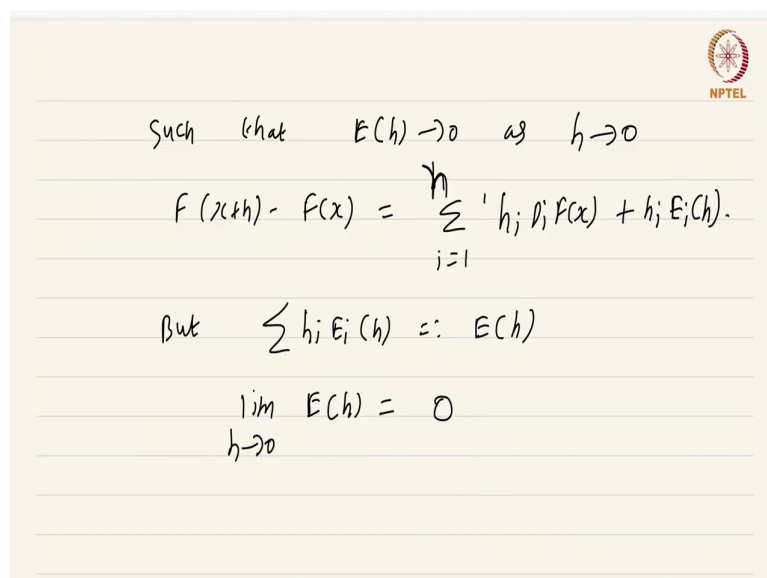 NPTEL
Such that E(h) → 0 as h → 0
F(x+h) - F(x) = n ∑ i=1 h_i D_i F(x) + h_i E_i(h).
But ∑ h_i E_i(h) =: E(h)
lim h→0 E(h) = 0